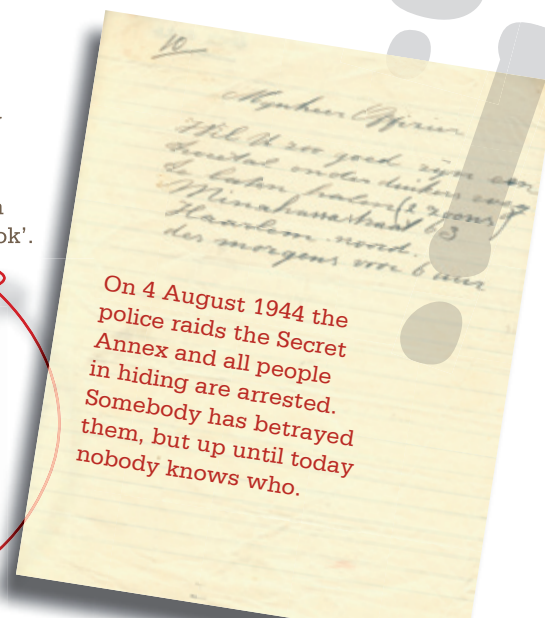 ok'.
10
Mynheer Officier
Wil U zoo goed zijn een
tweetal onderduikers weg
te halen halen (2 zoons)
Minahassastraat 63
Haarlem noord.
des morgens voor 6 uur
On 4 August 1944 the
police raids the Secret
Annex and all people
in hiding are arrested.
Somebody has betrayed
them, but up until today
nobody knows who.